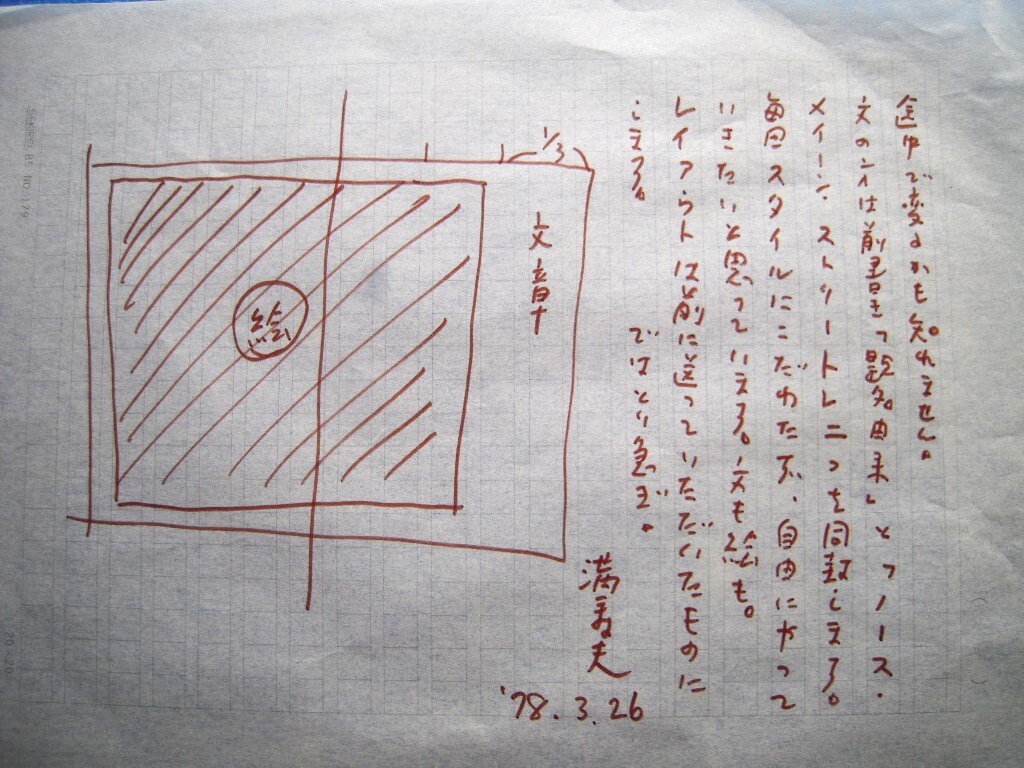 途中で変るかも知れません。
文の方は前書き「題名由来」と「ノース・
メイーン・ストリート」と二つを同封します。
毎回スタイルにこだわらず、自由にやって
いきたいと思っています。文も絵も。
レイアウトは前に送っていただいたものに
します。
ではとり急ぎ。
満寿夫
'78.3.26
1/3
文章
絵
SEKIREI B5 NO.179